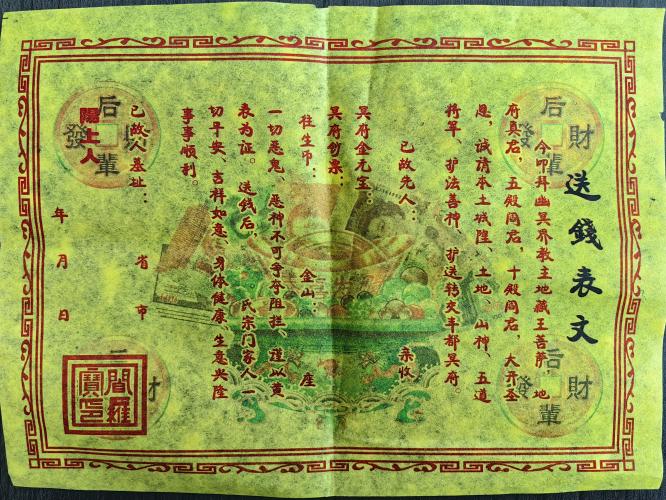 送錢表文
今叩拜幽冥界教主地藏王菩萨，地
府真君，五殿阎君，十殿阎君，大开圣
恩，诚请本土城隍、土地、山神、五道
将军，护法善神，护送转交丰都冥府。
已故先人： 亲收
冥府金元宝：
冥府钞票：
往生币： 金山： 座
一切恶鬼、恶神不可争夺阻拦，谨以黄
表为证。送钱后， 氏宗门家人一
切平安、吉祥如意、身体健康、生意兴隆
事事顺利。
已故人墓址： 省 市
陽上人
年 月 日
閻羅寶印
后輩發財
后輩發財
后輩發財
后 財